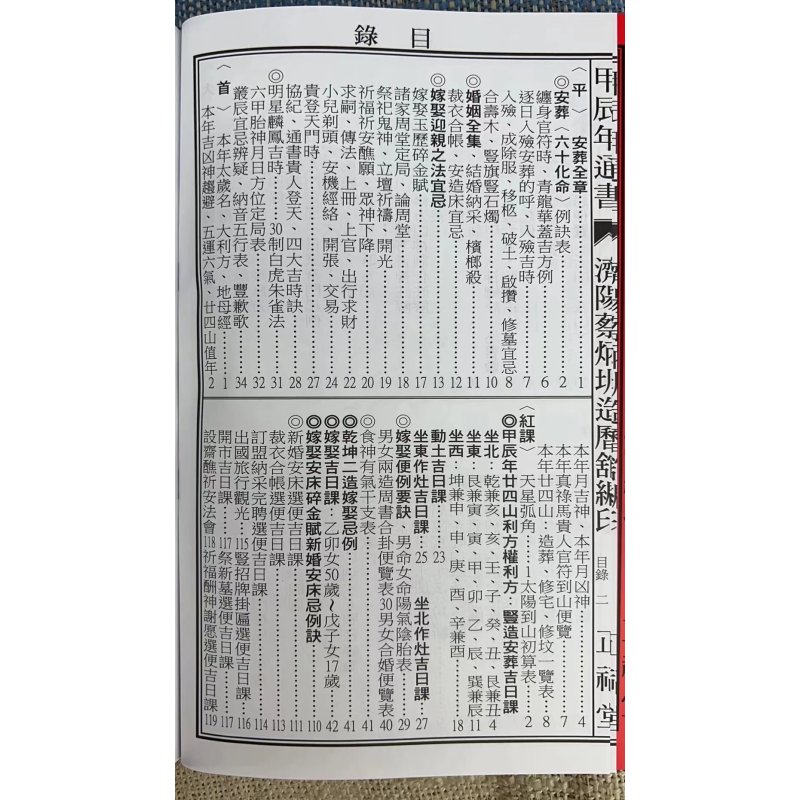 目錄
甲辰年通書
濟陽蔡炳圳造曆館編印
目錄 二
正福堂
〈平〉安葬全章……1
◎安葬〈六十化命〉例訣表……2
纏身官符時、青龍華蓋吉方例……6
逐日入殮安葬的呼、入殮吉時……7
入殮、成除服、移柩、破土、啟攢、修墓宜忌……8
合壽木、豎旗豎石燭……10
◎婚姻全集、結婚納采、檳榔殺……11
裁衣合帳、安造床宜忌……12
◎嫁娶迎親之法宜忌……13
嫁娶玉歷碎金賦……17
諸家周堂定局、論周堂……18
祭祀鬼神、立壇祈禱、開光……19
祈福祈安醮願、眾神下降……20
求嗣、傳法、上冊、上官、出行求財……22
小兒剃頭、安機經絡、開張、交易……24
貴登天門時……27
協紀、通書貴人登天、四大吉時訣……28
◎明星麟鳳吉時……30 制白虎朱雀法……31
六甲胎神月日方位定局表……32
叢辰宜忌辨疑、納音五行表、豐歉歌……34
〈首〉本年太歲名、大利方、地母經……1
本年吉凶神趨避、五運六氣、廿四山值年 2
本年月吉神、本年月凶神……4
本年真祿馬貴人官符到山便覽……7
本年廿四山：造葬、修宅、修坟一覽表……8
〈紅課〉天星弧角……1 太陽到山初算表……2
◎甲辰年廿四山利方權利方：豎造安葬吉日課
坐北：乾兼亥、亥、壬、子、癸、丑、艮兼丑 4
坐東：艮兼寅、寅、甲、卯、乙、辰、巽兼辰 11
坐西：坤兼申、申、庚、酉、辛兼酉……18
動土吉日課……23
坐東作灶吉日課……25 坐北作灶吉日課……27
◎嫁娶便例要訣、男命女命陽氣陰胎表……29
男女兩造周書合卦便覽表 30 男女合婚便覽表 40
◎食神有氣干支表……41
◎乾坤二造嫁娶忌例……41
◎嫁娶吉日課：乙卯女50歲～戊子女17歲……42
◎嫁娶安床碎金賦新婚安床忌例訣……110
◎新婚安床選便吉日課……111
裁衣合帳選便吉日課……113
訂盟納采完聘選便吉日課……114
出國旅行觀光……115 豎招牌掛匾選便吉日課……116
開市吉日課……117 祭新墓選便吉日課……117
設齋醮祈安法會 118 祈福酬神謝愿選便吉日課 119